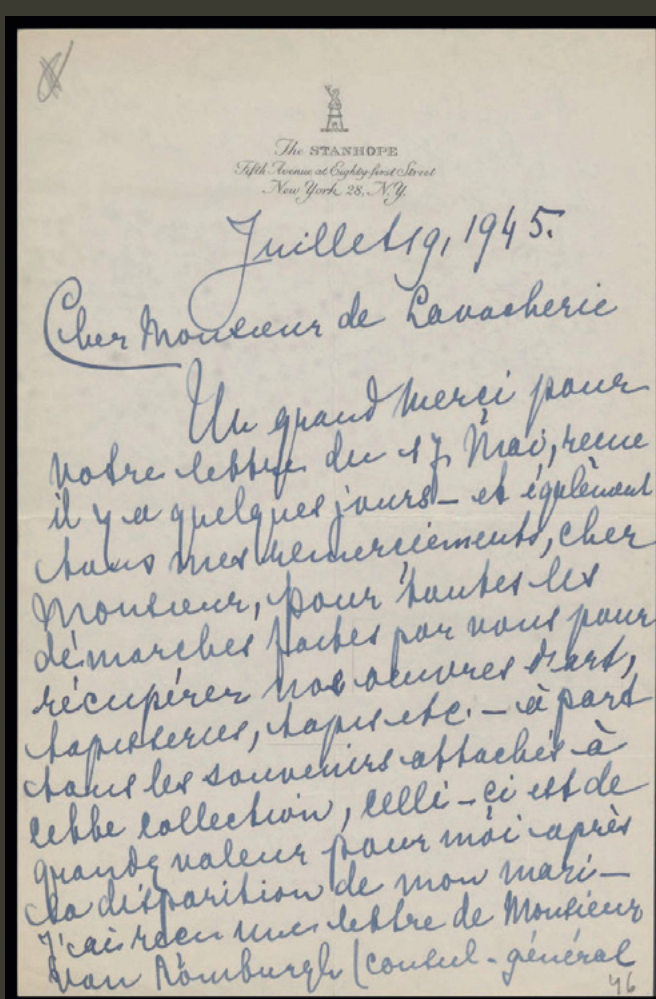 The STANHOPE
Fifth Avenue at Eighty-first Street
New York 28, N.Y.
Juillet 19, 1945.
Cher Monsieur de Lavacherie
Un grand merci pour
votre lettre du 17 Mai, recue
il y a quelques jours – et également
tous mes remerciements, cher
Monsieur, pour toutes les
démarches faites par vous pour
récupérer nos oeuvres d'art,
tapisseries, tapis etc. – à part
tous les souvenirs attachés à
cette collection, celle-ci est de
grande valeur pour moi après
la disparition de mon mari –
J'ai recu une lettre de Monsieur
Van Romburgh (consul-général
46